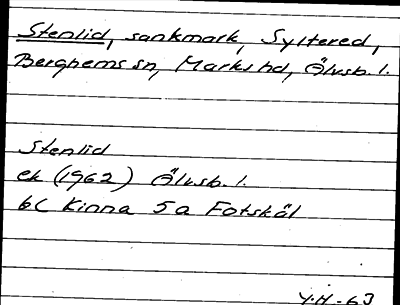 Stenlid, sankmark, Syltered,
Berghems sn, Marks hd, Älvsb. l.
Stenlid
ek (1962) Älvsb. l.
6C Kinna 5a Fotskäl
Y.H. -63